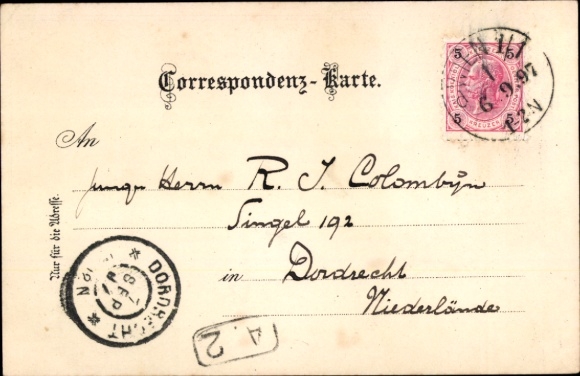 Correspondenz-Karte.
WIEN 1/1
6. 9. 97
5 5
5 KREUZER 5
An
Herrn R. J. Colombijn
Singel 192
in Dordrecht
Niederlände
Nur für die Adresse.
DORDRECHT
SEP
4. 2